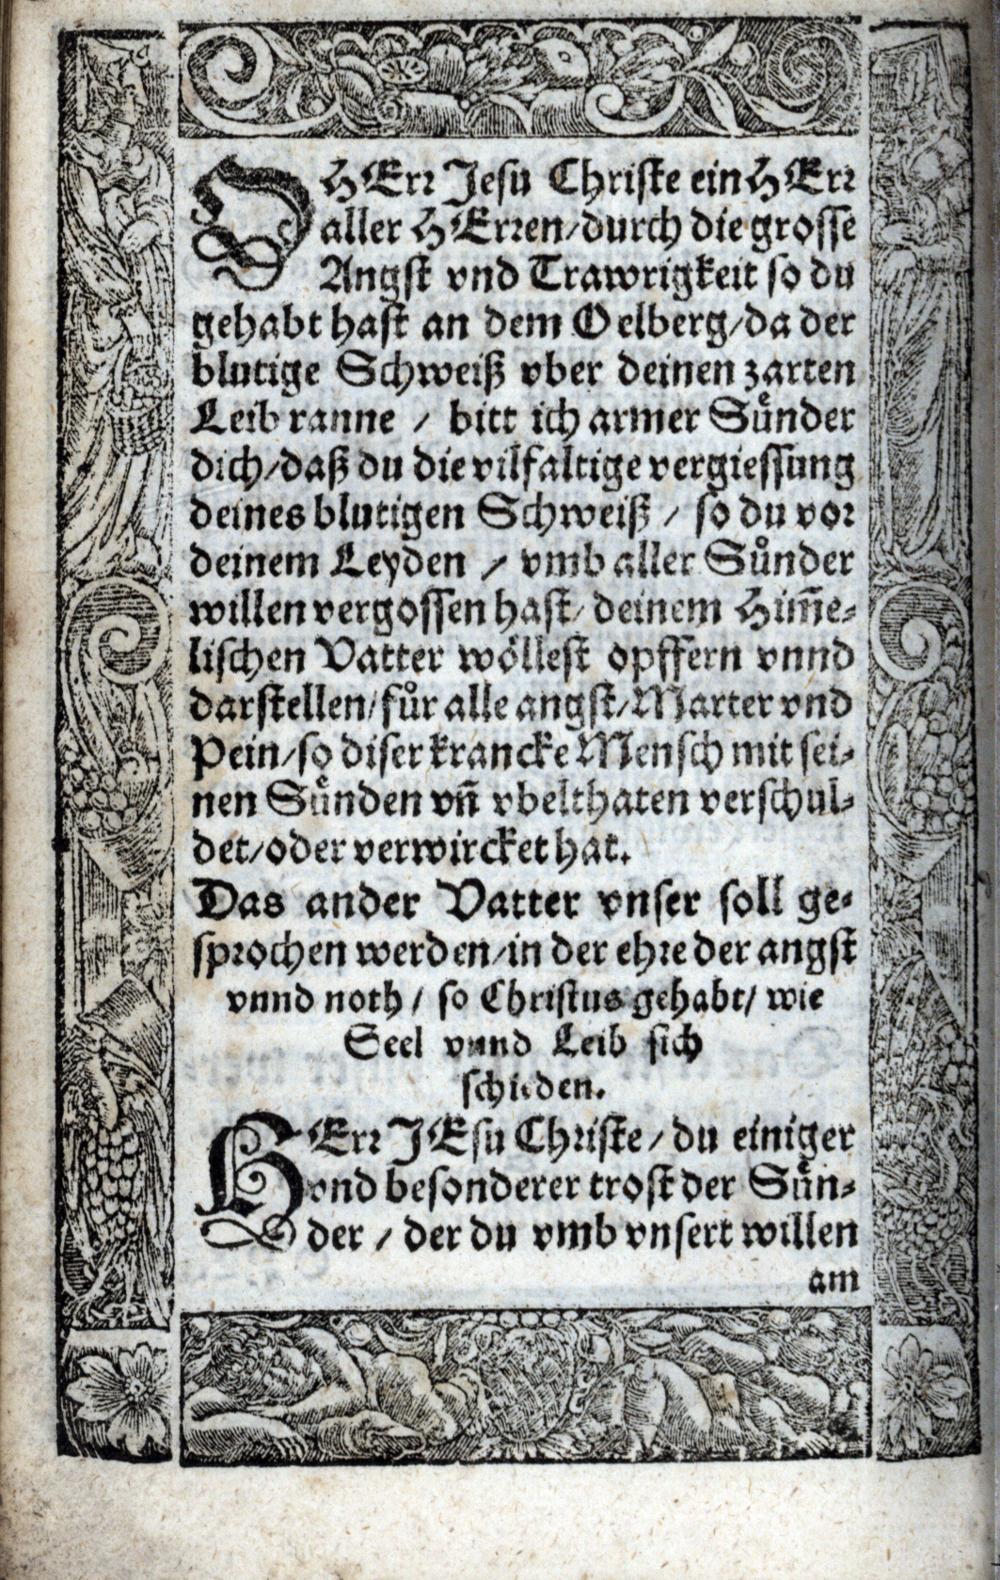 O HErr Jesu Christe ein HErr
aller HErren/durch die grosse
Angst vnd Trawrigkeit so du
gehabt hast an dem Oelberg/da der
blutige Schweiß vber deinen zarten
Leib ranne / bitt ich armer Sůnder
dich/daß du die vilfaltige vergiessung
deines blutigen Schweiß / so du vor
deinem Leyden / vmb aller Sůnder
willen vergossen hast/ deinem Him̄e-
lischen Vatter wöllest opffern vnnd
darstellen/fůr alle angst/Marter vnd
Pein/so diser krancke Mensch mit sei-
nen Sůnden vn̄ vbelthaten verschul-
det/oder verwircket hat.
Das ander Vatter vnser soll ge-
sprochen werden/in der ehre der angst
vnnd noth / so Christus gehabt/ wie
Seel vnnd Leib sich
schieden.
HErr JEsu Christe / du einiger
vnd besonderer trost der Sůn-
der / der du vmb vnsert willen
am